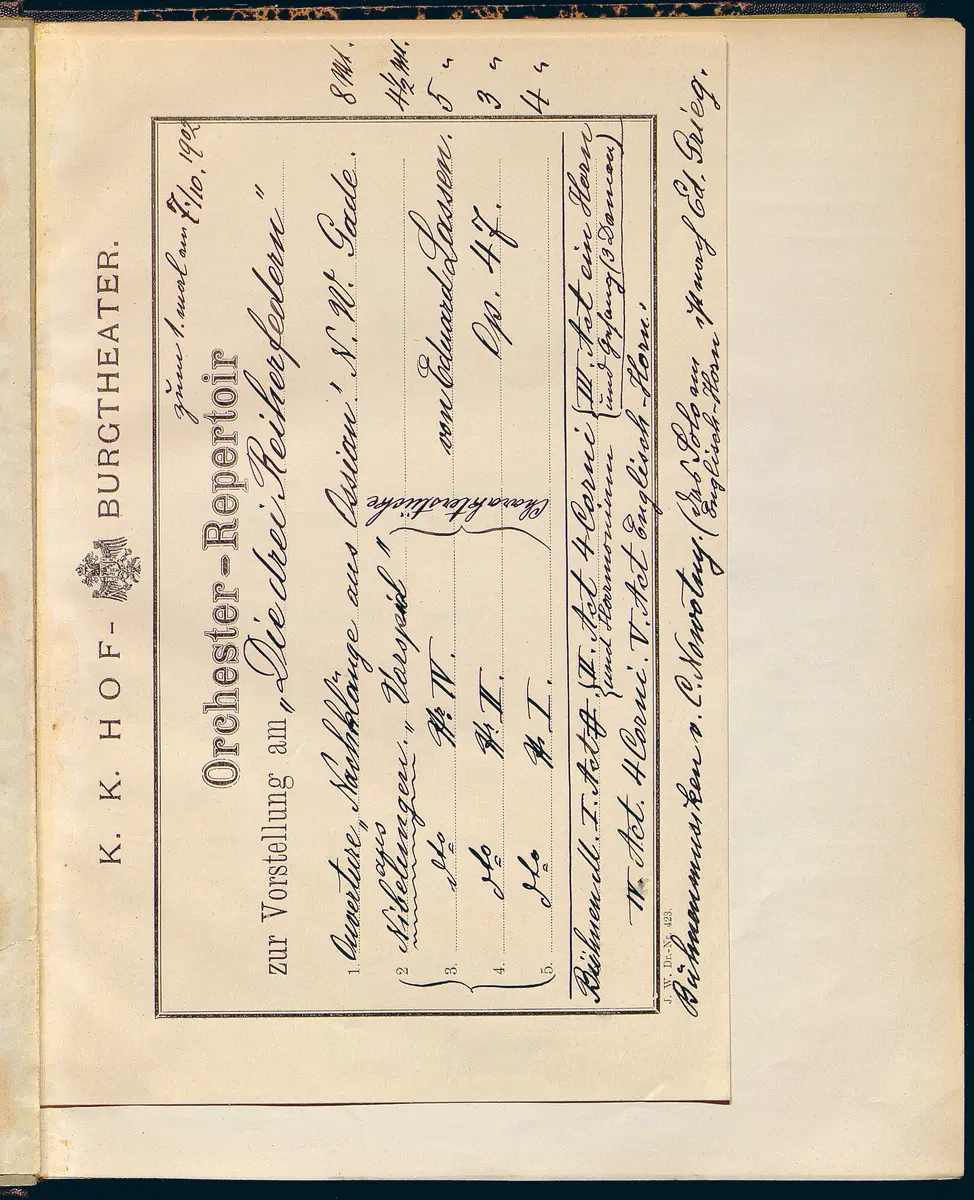 K. K. HOF-BURGTHEATER.
zum 1. mal am 7./10. 1902
Orchester-Repertoir
zur Vorstellung am „Die drei Reiherfedern"
1. Ouverture „Nachklänge aus Ossian" N. W. Gade. 8 Mt.
2 aus Nibelungen. „Vorspiel" 4½ Mt.
3. dto № IV. von Eduard Lassen. 5 "
4. dto № II. Op. 47. 3 "
5. dto № I. 4 "
Charakterstücke
Bühnen M. I. Act II. Act 4 Corni III. Act ein Horn
und Harmonium und Gesang (3 Damen)
IV. Act. 4 Corni. V. Act Englisch-Horn.
J. W. Dr.-Nr. 423.
Bühnenmusiken v. C. Nowotny. (Das Solo am
Englisch-Horn ist nach Ed. Grieg.